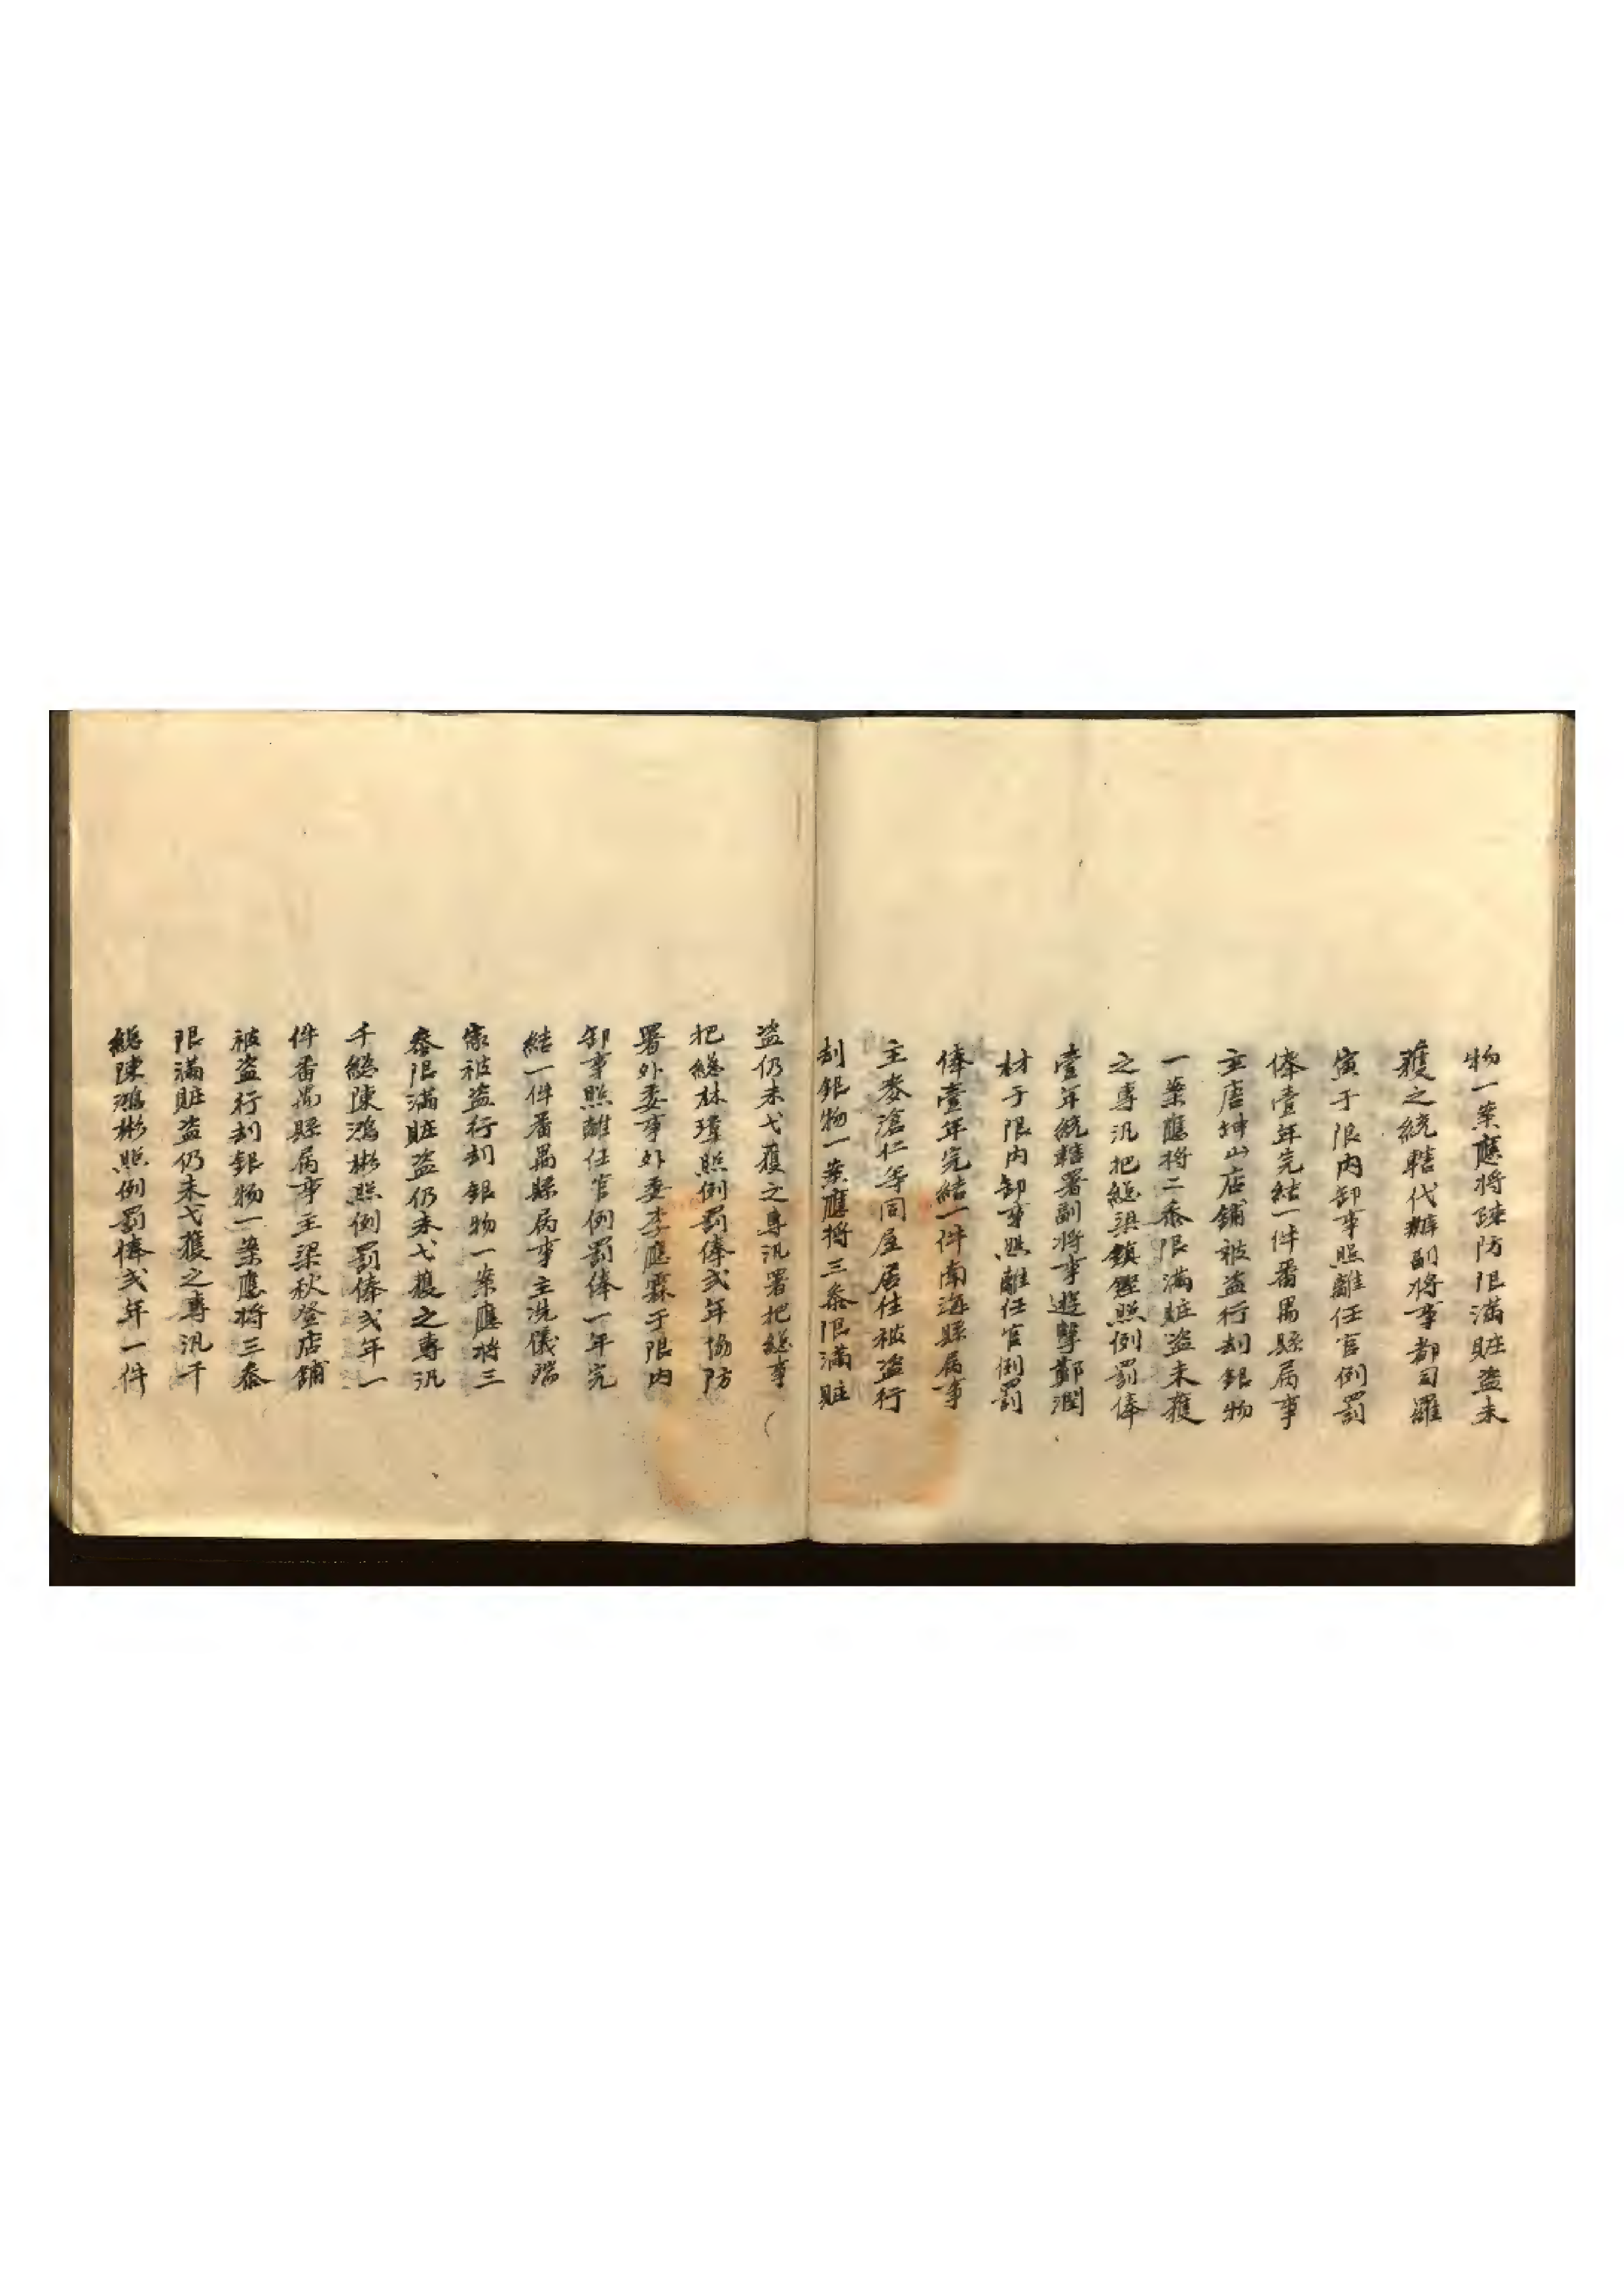 物一案應將疎防限滿賍盗未
獲之統轄代辦副将事都司羅
寅于限内卸事照離任官例罰
俸壹年完結一件番禺縣属事
主唐坤山店舖被盗行刦銀物
一案應将二叅限滿賍盗未獲
之專汛把總梁鎮 照例罰俸
壹年統轄署副将事遊擊鄭潤
材于限内卸事照離任官例罰
俸壹年完結一件南海縣属事
主麥滄仁等同屋居住被盗行
刦銀物一案應將三叅限滿賍
盗仍未弋獲之專汛署把總事
把總林瑋照例罰俸弍年協防
署外委事外委李應霖于限内
卸事照離任官例罰俸一年完
結一件番禺縣属事主冼儀瑞
家被盗行刦銀物一案應將三
叅限滿賍盗仍未弋獲之專汛
千總陳鴻彬照例罰俸弍年一
件番禺縣属事主梁秋登店舖
被盗行刦銀物一案應將三叅
限滿賍盗仍未弋獲之專汛千
總陳鴻彬照例罰俸弍年一件